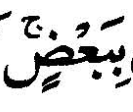 بِبَعْضٍ ۚ